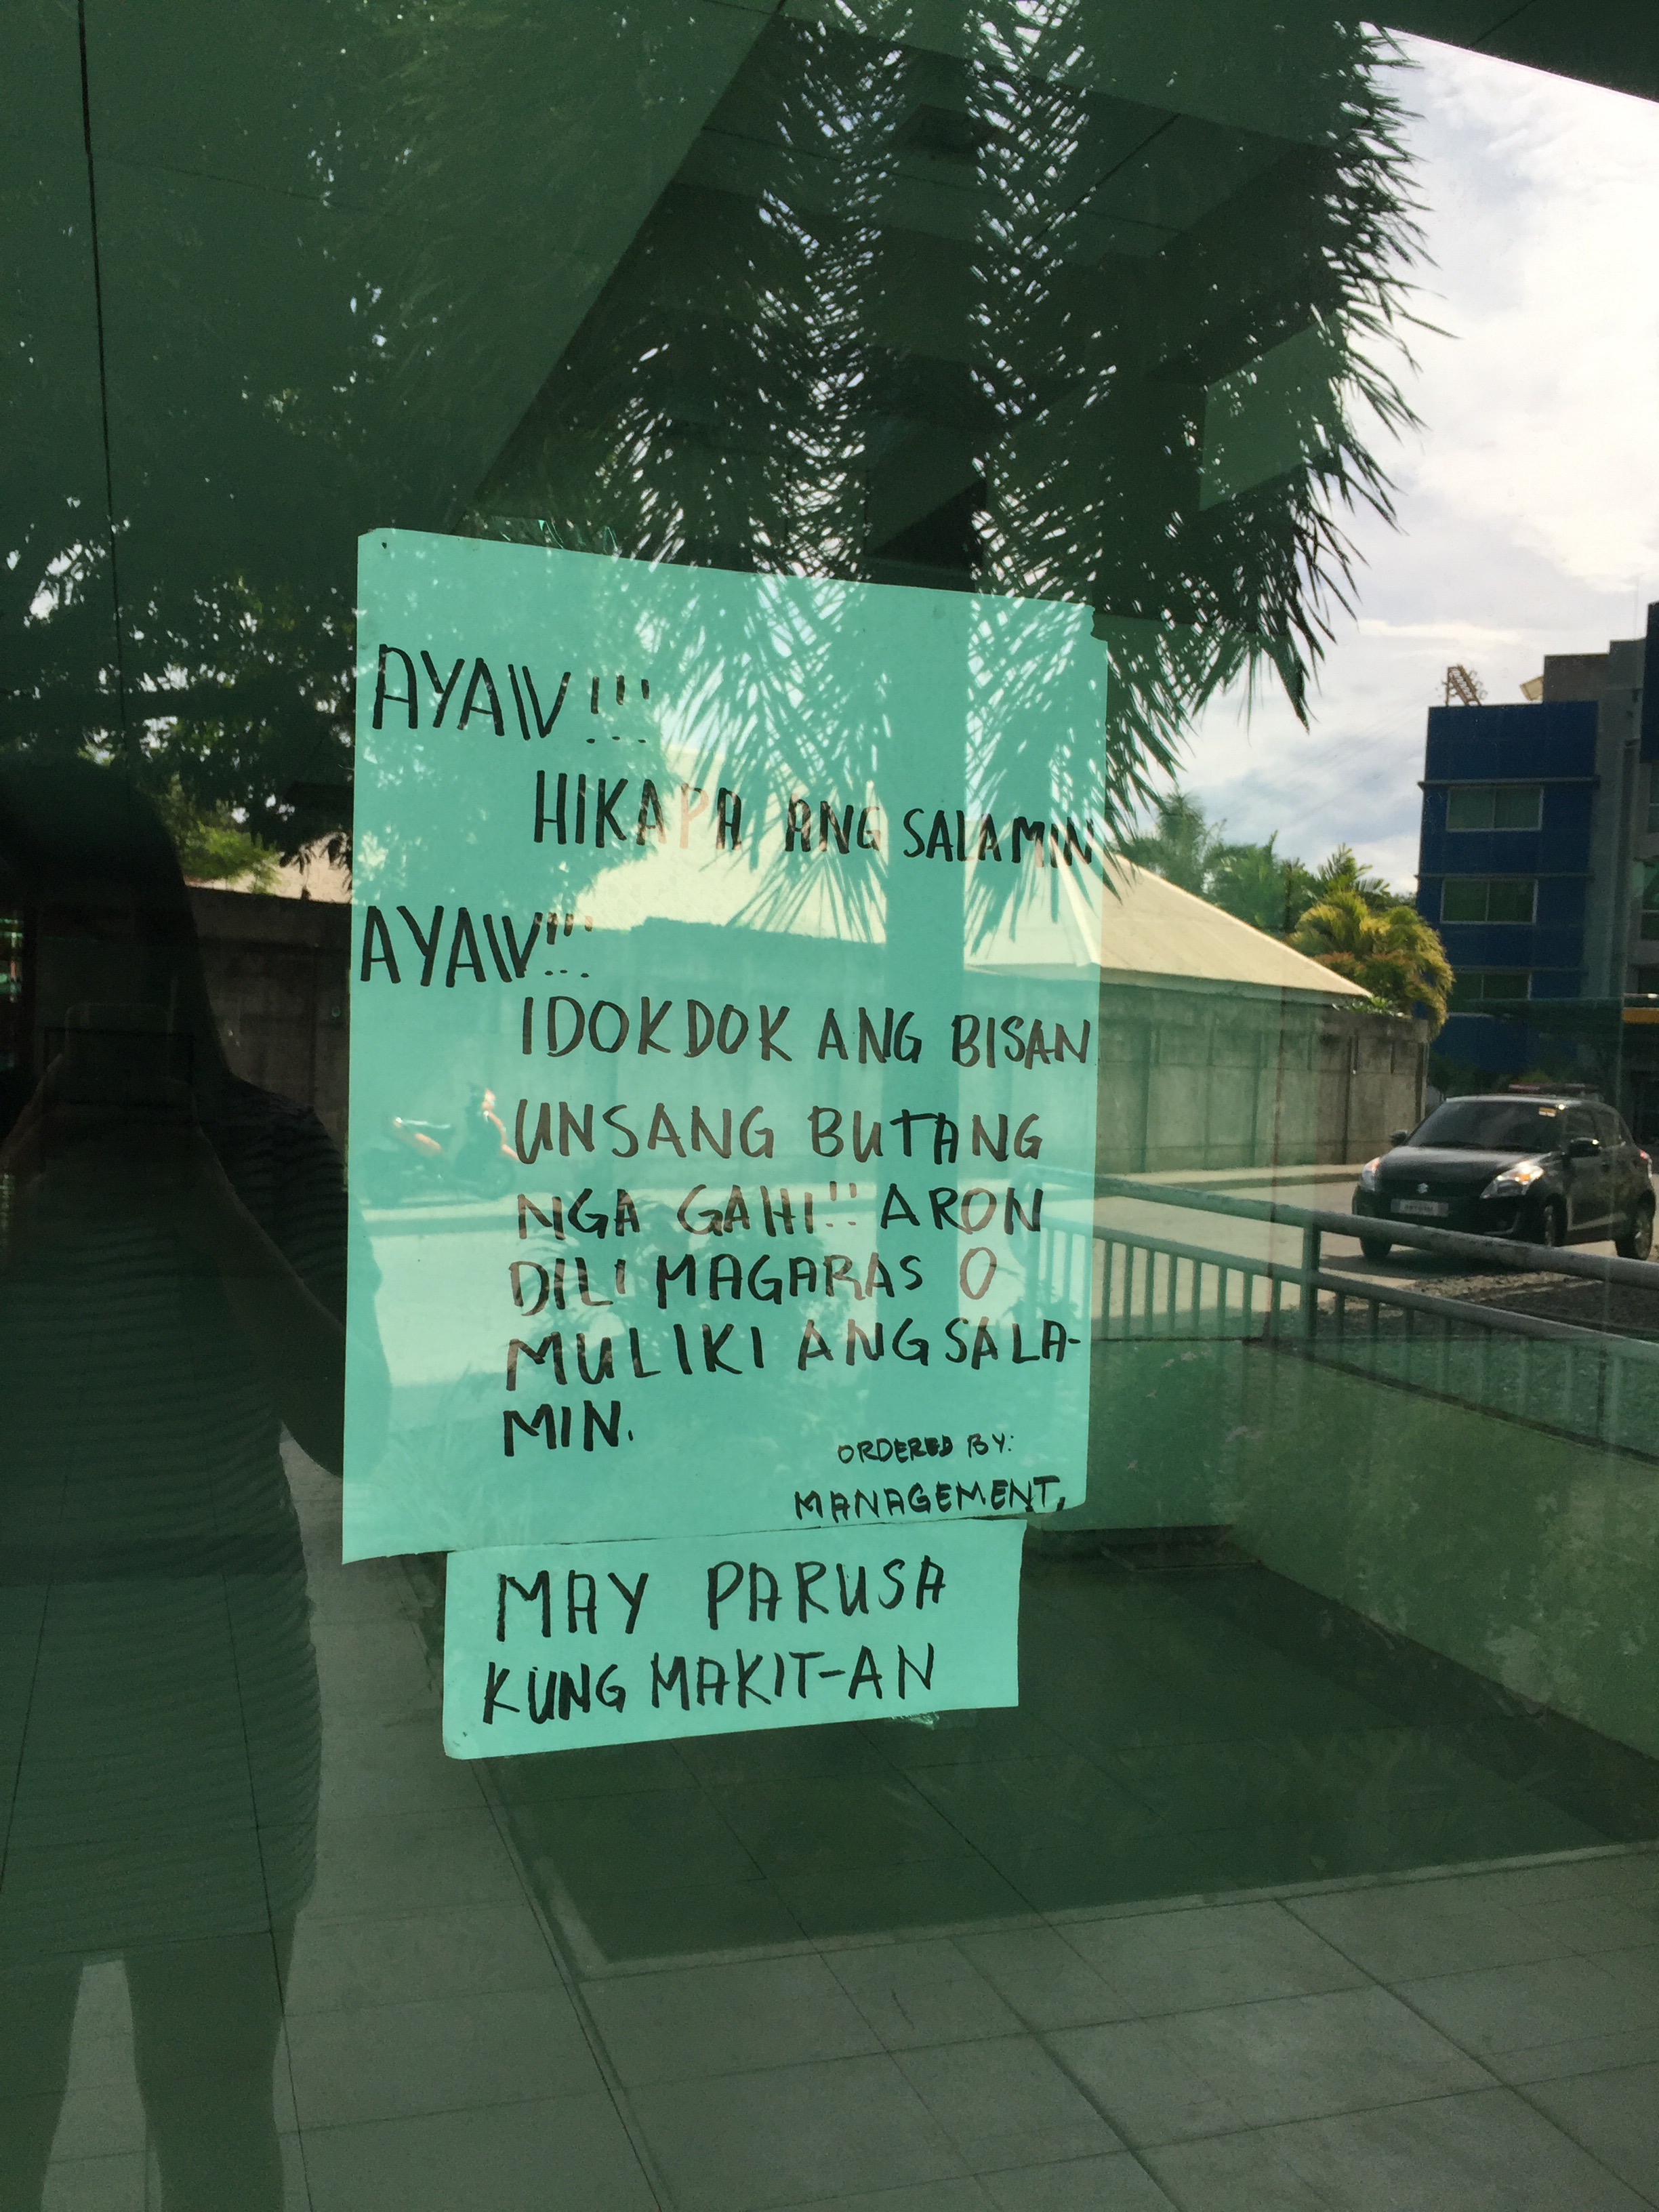 AYAW!!!
HIKAPA ANG SALAMIN
AYAW!!!
IDOKDOK ANG BISAN
UNSANG BUTANG
NGA GAHI!! ARON
DILI MAGARAS O
MULIKI ANG SALA-
MIN.
ORDERED BY:
MANAGEMENT.
MAY PARUSA
KUNG MAKIT-AN